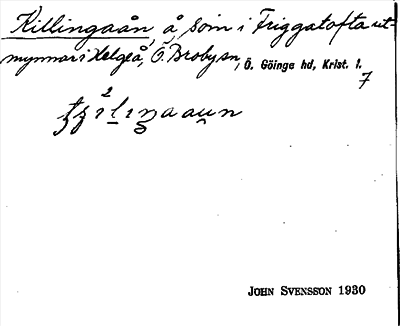 Killingaån, å, som i Friggatofta ut-
mynnar i Helgeå, Ö. Broby sn, Ö. Göinge hd, Krist. l.
7
2
JOHN SVENSSON 1930